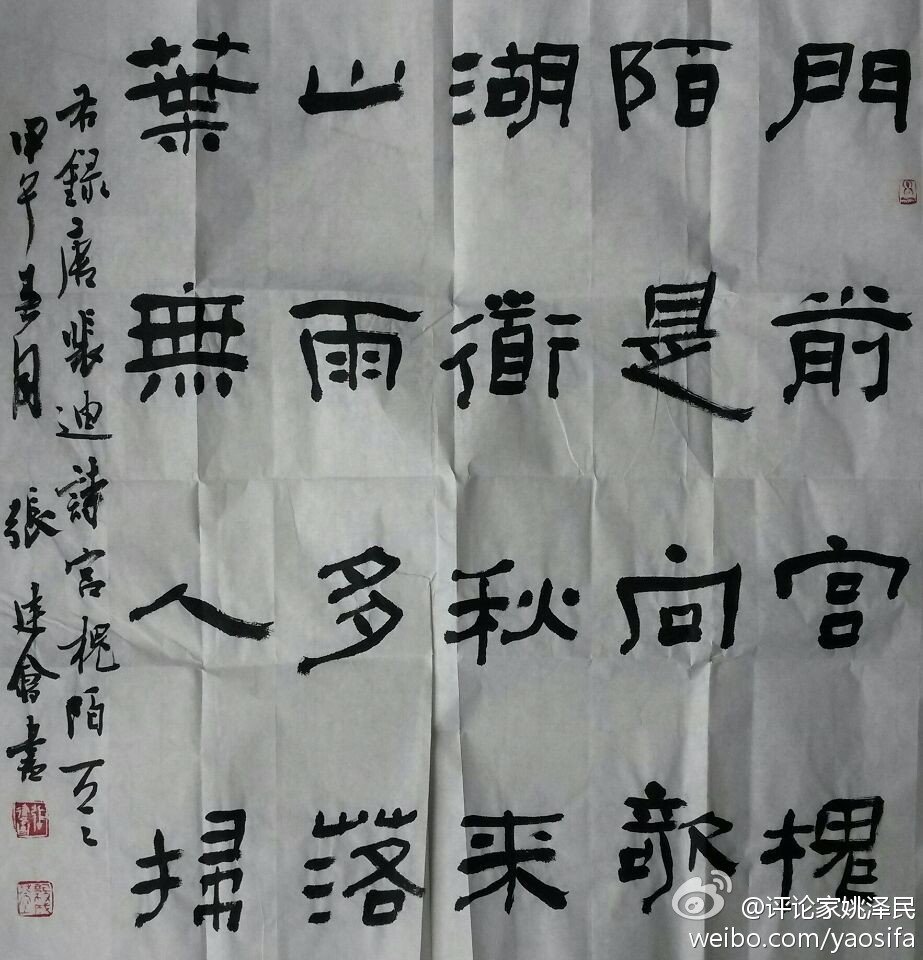 門前宮槐
陌是向欹
湖衟秋來
山雨多落
葉無人掃
右錄唐裴迪詩宮槐陌
甲午春月 張建會書
@评论家姚泽民
weibo.com/yaosifa